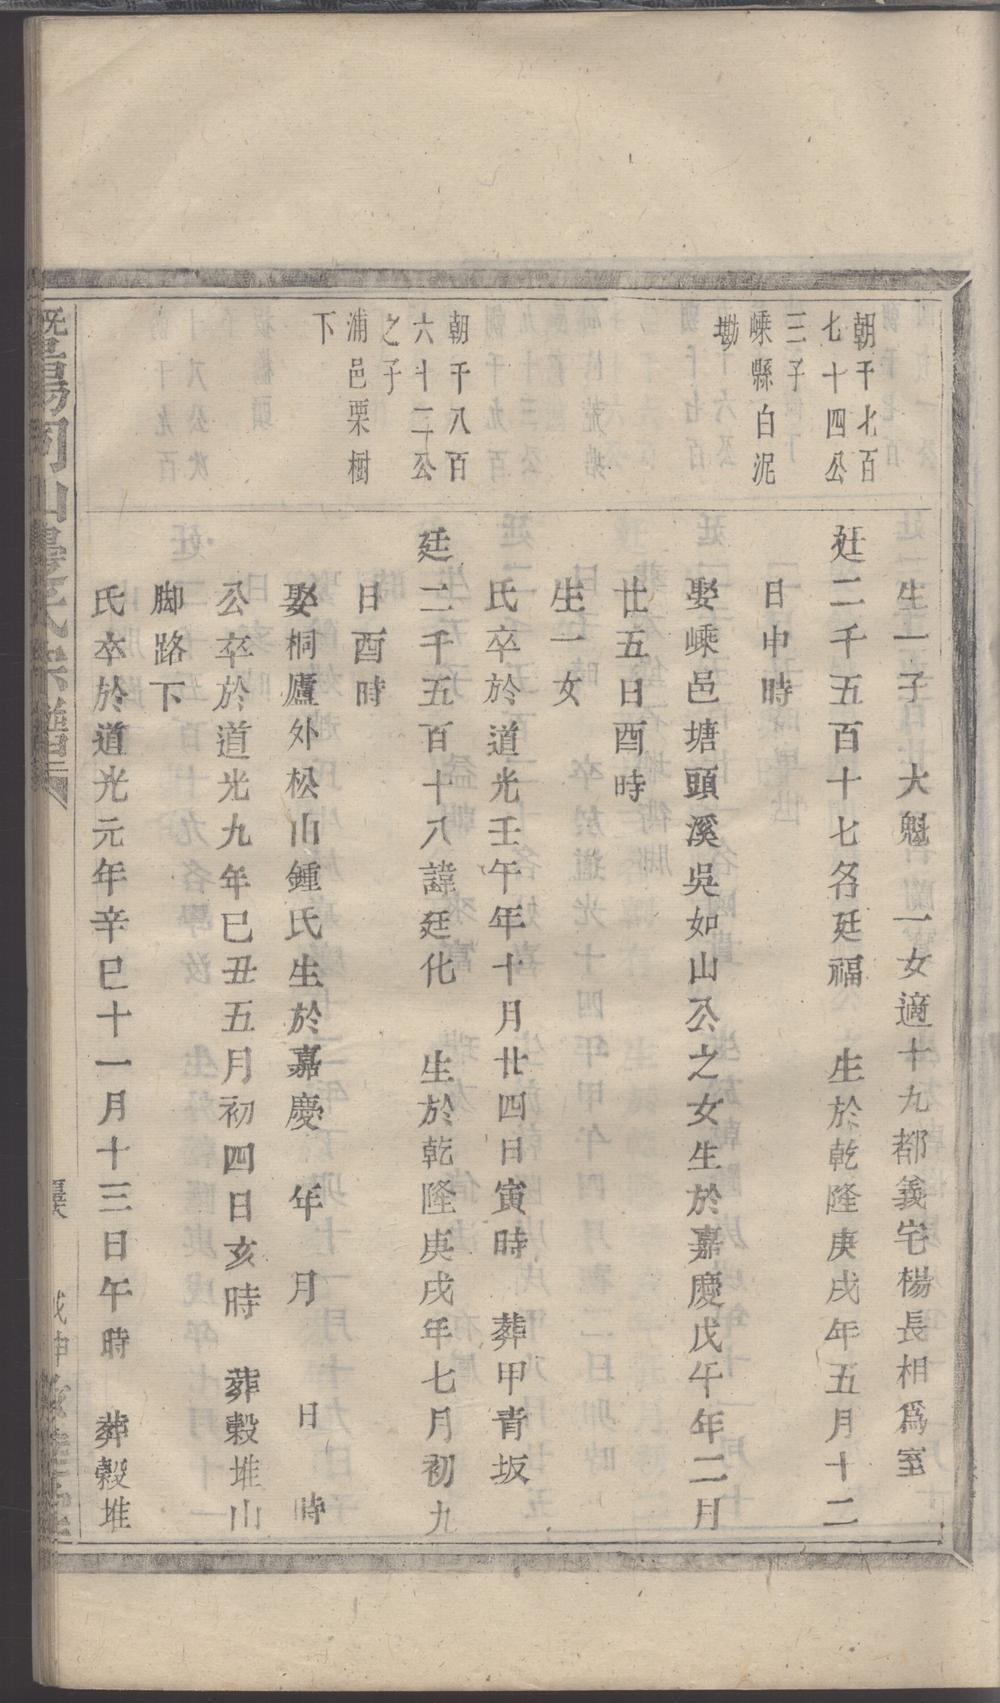 朝千七百
七十四公
三子
嵊縣白泥
墈
朝千八百
六十二公
之子
浦邑栗樹
下
生一子　大魁　一女適十九都義宅楊長相爲室
廷二千五百十七名廷福　生於乾隆庚戌年五月十二
日申時
娶嵊邑塘頭溪吳如山公之女生於嘉慶戊午年二月
廿五日酉時
生一女
氏卒於道光壬午年十月廿四日寅時　葬甲青坂
廷二千五百十八諱廷化　生於乾隆庚戌年七月初九
日酉時
娶桐廬外松山鍾氏生於嘉慶　年　月　日　時
公卒於道光九年巳丑五月初四日亥時　葬穀堆山
脚路下
氏卒於道光元年辛巳十一月十三日午時　葬穀堆